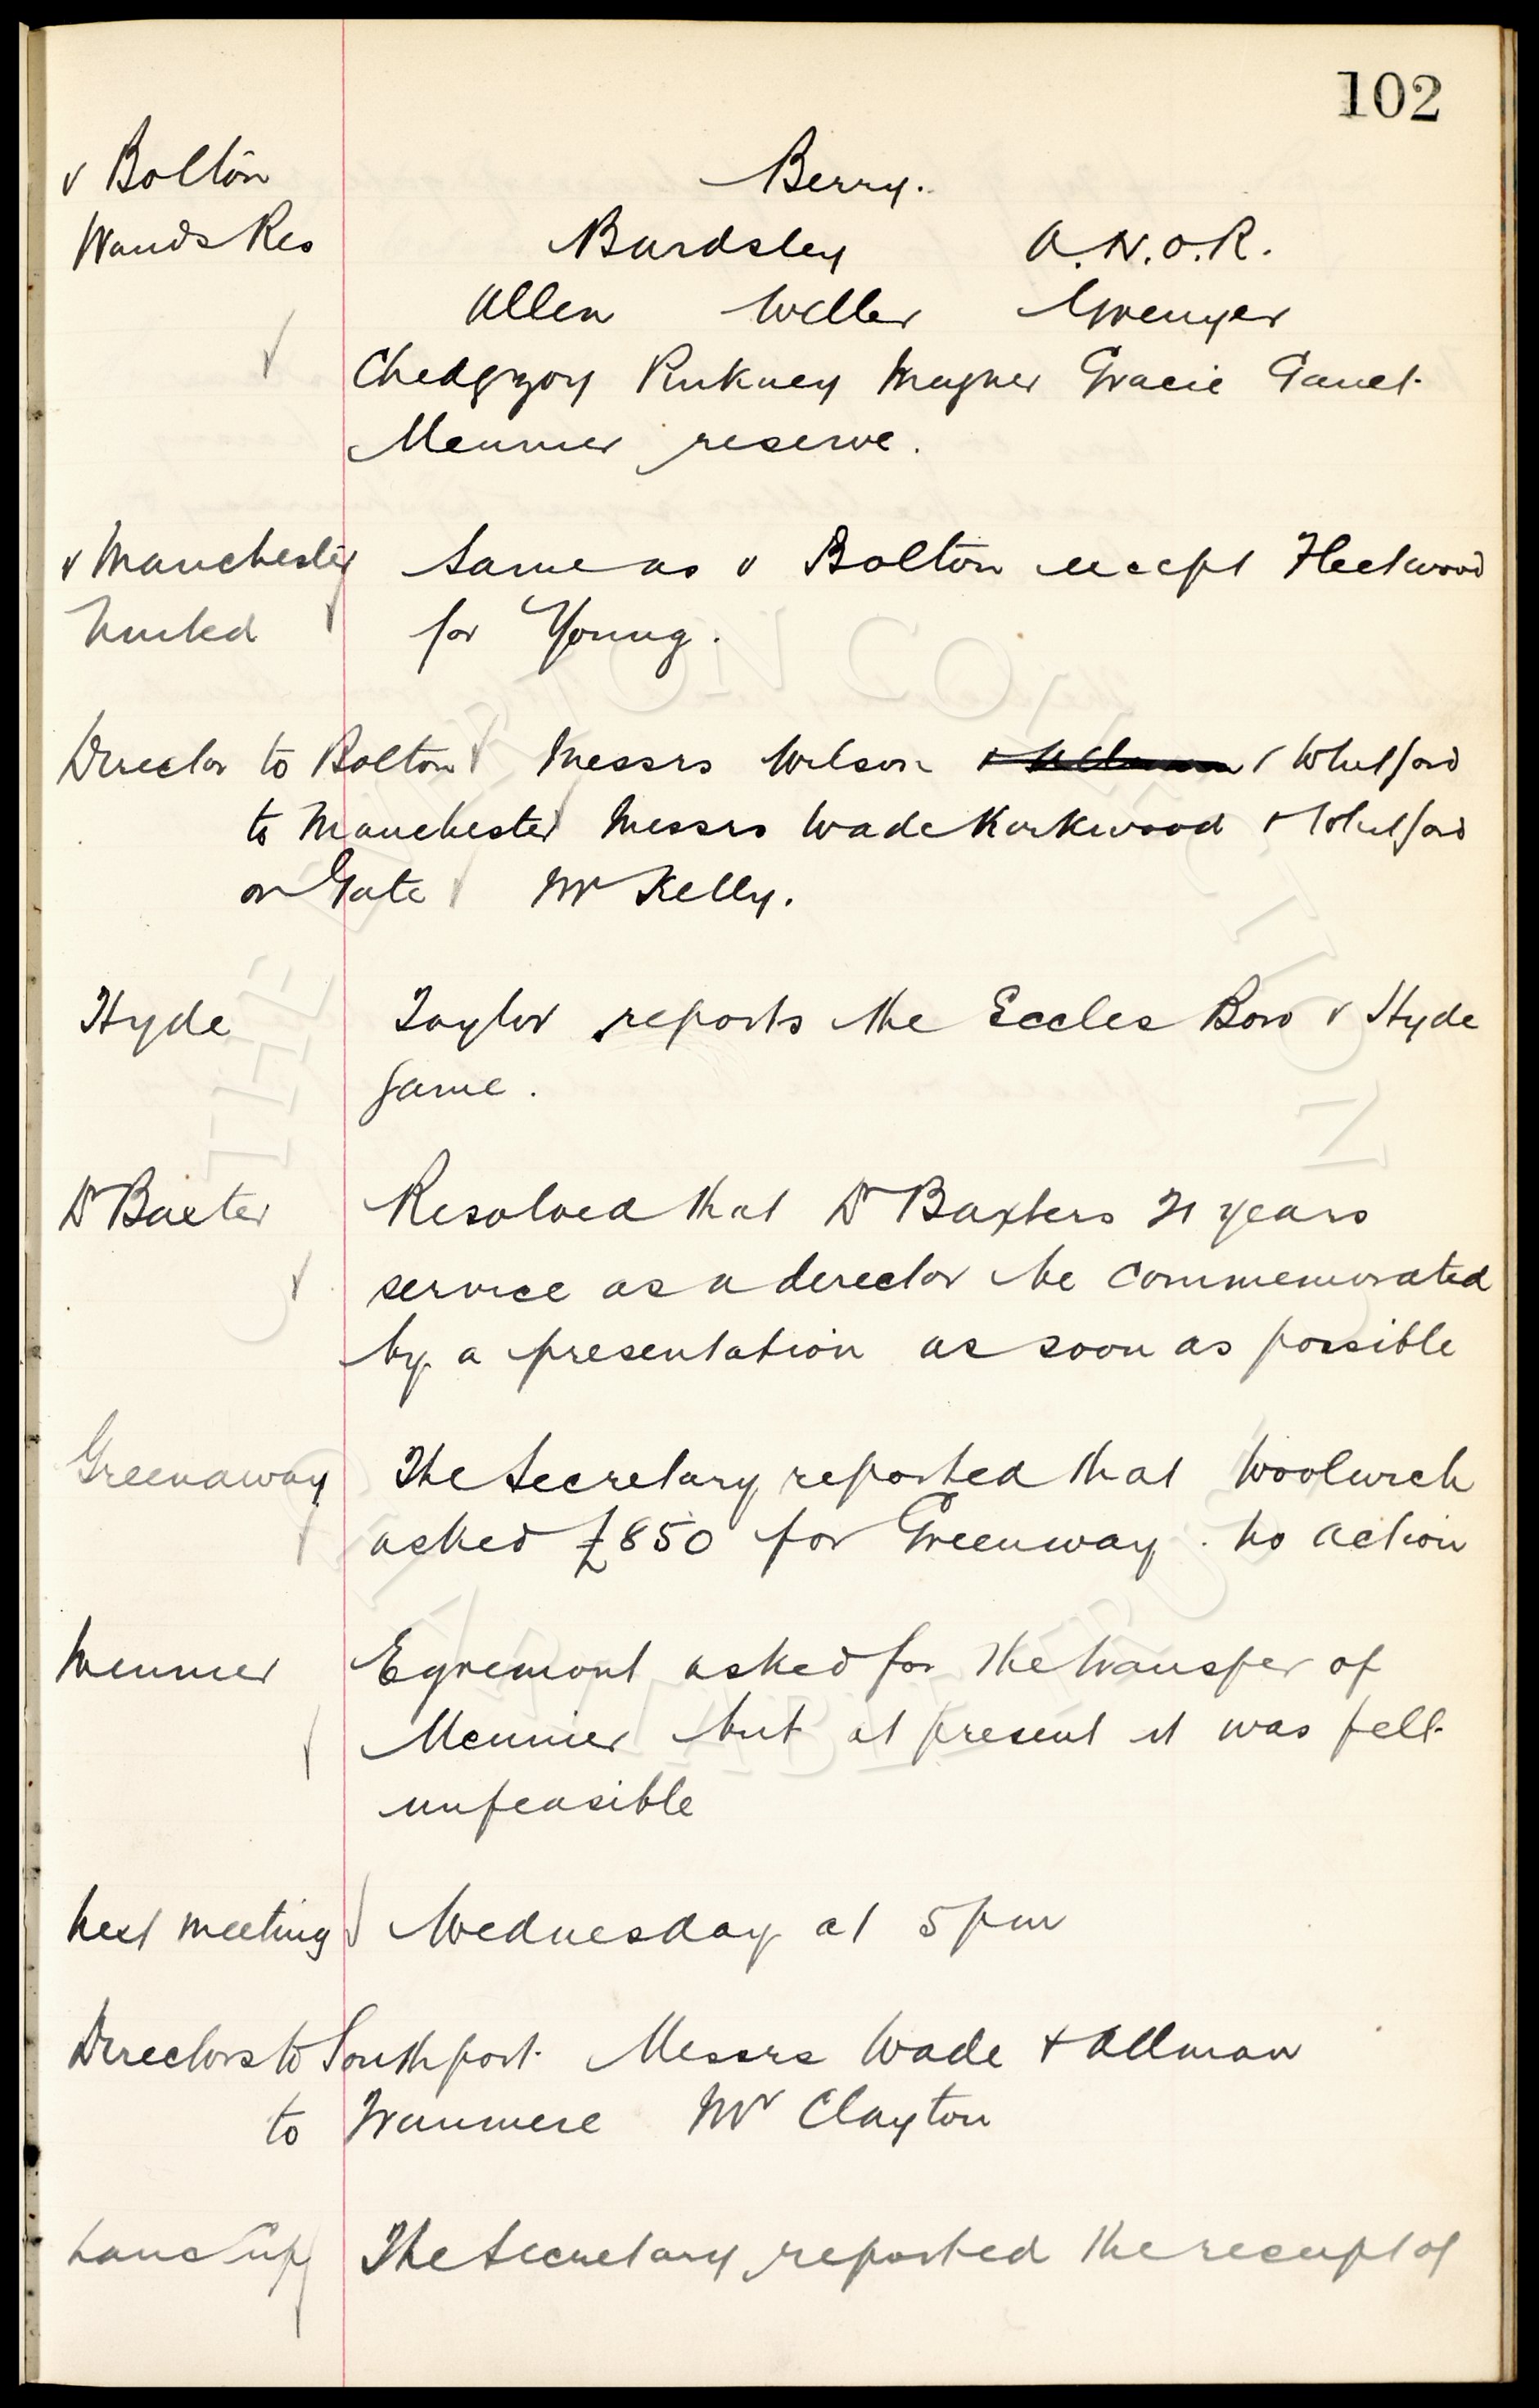 102
v Bolton Berry.
Wands Res Bardsley A.N.O.R.
Allen Weller Grenyer
Chedgzoy Pinkney Magner Gracie Gault
Meunier reserve.
v Manchester Same as v Bolton except Fleetwood
United for Young.
Director to Bolton Messrs Wilson & Whitford
to Manchester Messrs Wade Kirkwood & Whitford
on Gate Mr Kelly.
Hyde Taylor reports the Eccles Boro v Hyde
game.
Dr Baxter Resolved that Dr Baxters 21 years
service as a director be commemorated
by a presentation as soon as possible
Greenaway The Secretary reported that Woolwich
asked £850 for Greenway. No action
Meunier Egremont asked for the transfer of
Meunier but at present it was felt
unfeasible
Next meeting Wednesday at 5 pm
Directors to Southport. Messrs Wade + Allman
to Tranmere Mr Clayton
Lanc Cup The Secretary reported the receipt of
THE EVERTON COLLECTION
CHARITABLE TRUST